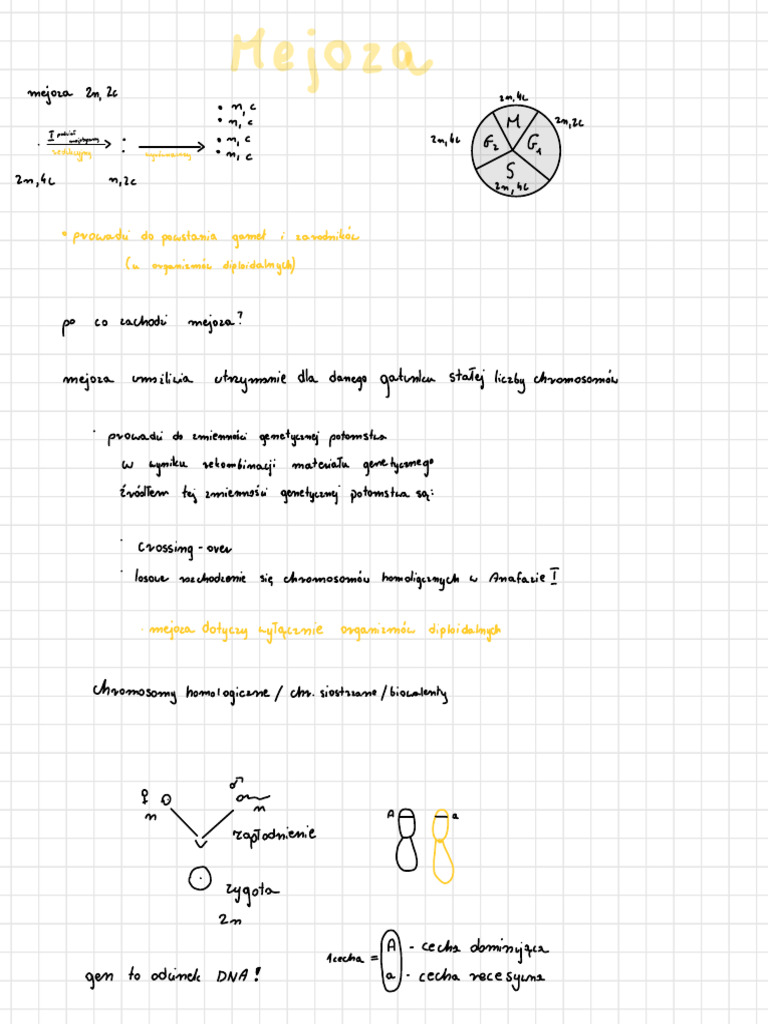 Mejoza
mejoza 2n, 2c
I podział mejotyczny
redukcyjny
2n, 4c
n, 2c
wyrównawczy
• n, c
• n, c
• n, c
• n, c
2n, 4c
2n, 2c
M
G₂
G₁
S
2n, 4c
• prowadzi do powstania gamet i zarodników
(u organizmów diploidalnych)
po co zachodzi mejoza?
mejoza umożliwia utrzymanie dla danego gatunku stałej liczby chromosomów
· prowadzi do zmienności genetycznej potomstwa
w wyniku rekombinacji materiału genetycznego
źródłem tej zmienności genetycznej potomstwa są:
· crossing-over
· losowe rozchodzenie się chromosomów homoligcznych w Anafazie I
· mejoza dotyczy wyłącznie organizmów diploidalnych
chromosomy homologiczne / chr. siostrzane / biowalenty
♀
n
♂
n
zapłodnienie
zygota
2n
A
a
1 cecha =
A - cecha dominująca
a - cecha recesywna
gen to odcinek DNA!